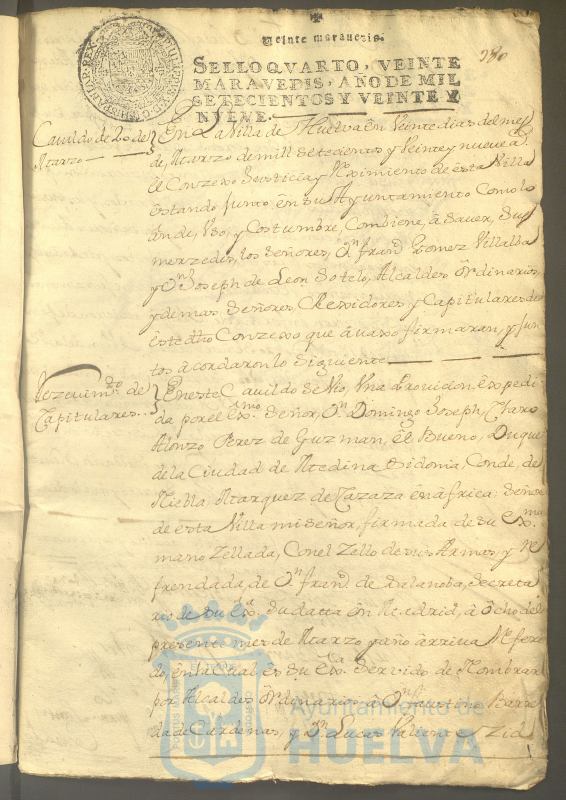 Veinte maravedis.
SELLO QVARTO, VEINTE
MARAVEDIS, AÑO DE MIL
SETECIENTOS Y VEINTE Y
NVEVE.
Cavildo de 20 de
Marzo
En La Villa de Huelva en Veinte dias del mes
de Marzo de mill Setecientos y Veinte y nueve a.
el Conzexo Justicia y Reximiento de esta Villa
estando Junto en su Ayuntamiento Como lo
an de, Vso, y Costumbre, Combiene, a Saver, Sus
merzedes, los Señores, Dn. Franco. Gomez Villalba
y Dn. Joseph de Leon Sotelo, Alcaldes Ordinarios,
y demas Señores, Rexidores, y Capitulares de
este dho Conzexo que avaxo firmaran, y Jun
tos acordaron lo siguiente
Rezevimto. de
Capitulares..
En este Cavildo se Vio, Vna Provicion, expedi
da por el Exmo. Señor, Dn. Domingo Joseph, Claros
Alonzo Perez de Guzman, el Bueno, Duque
de la Ciudad de Medina Sidonia, Conde, de
Niebla, Marquez de Cazaza en africa, Señor
de esta Villa mi Señor, firmada de Su Exma.
mano Zellada, Con el Zello de sus Armas, y Re
frendada, de Dn. Franco. de Salanoba, Secreta
rio de Su Exa. Su datta en Madrid, a ocho del
presente mes de Marzo y año arriva Refe
do, en la Cual es Su Exa. Servido de Nombrar
por Alcaldes Ordinarios, a Dn. faustino Barre
da de Cardenas, y Dn. Lucas Valiente, Zid
Ayuntamiento de
HUELVA